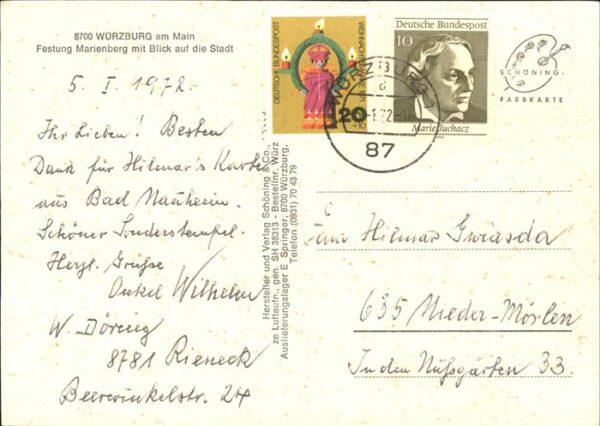 8700 WÜRZBURG am Main
Festung Marienberg mit Blick auf die Stadt
5. I. 1972.
Ihr Lieben! Besten
Dank für Hilmar's Karte
aus Bad Nauheim.
Schöner Sonderstempel.
Herzl. Grüße
Onkel Wilhelm
W. Döring
8781 Rieneck
Beerwinkelstr. 24
Hersteller und Verlag Schöning & Co.,
ze Luftaufn., gen. SH 38313 - Bestellnr. Würz
Auslieferungslager E. Springer, 8700 Würzburg,
Telefon (0931) 70 43 79
DEUTSCHE BUNDESPOST
20
Deutsche Bundespost
10
Marie Juchacz
WÜRZBURG
d
87
SCHÖNING-
FARBKARTE
Hilmar Gwiasda
635 Nieder-Mörlen
In den Nußgärten 33.